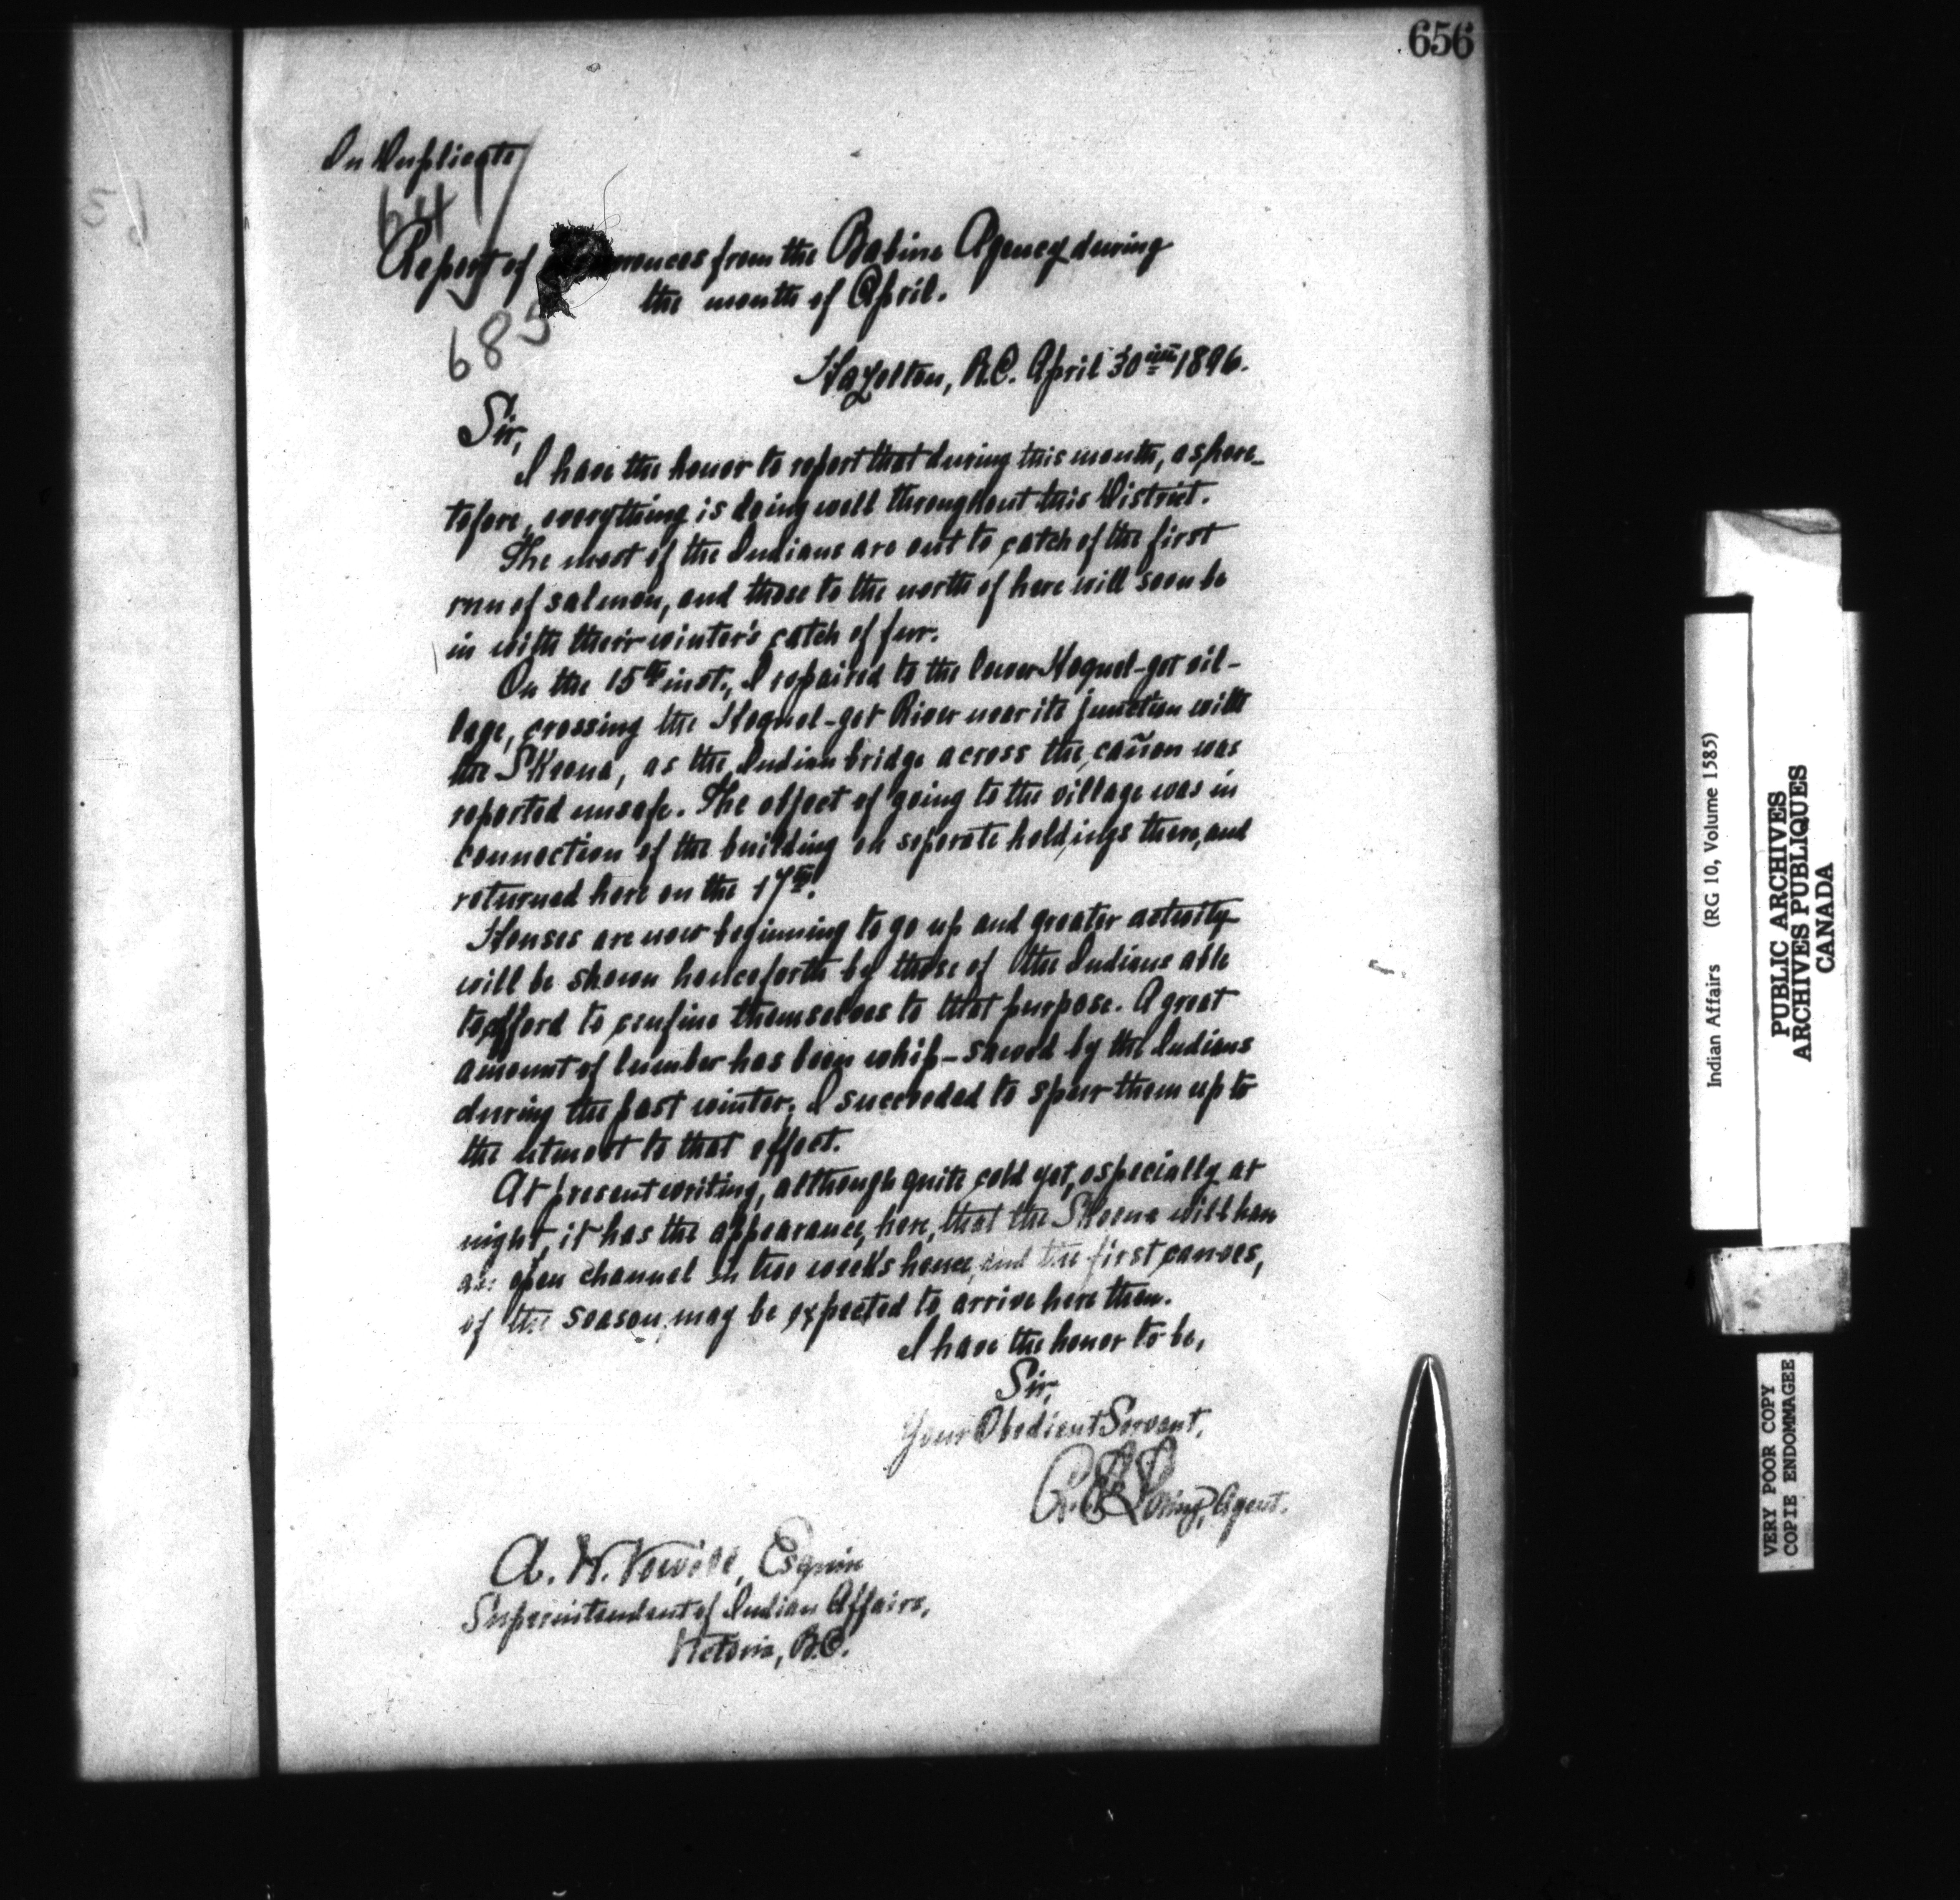 656
In Duplicate
641
Report of rences from the Babine Agency during
the month of April.
685
Hazelton, B.C. April 30th 1896.
Sir,
I have the honor to report that during this month, as here-
tofore, everything is doing well throughout this District.
The most of the Indians are out to catch of the first
run of salmon, and those to the north of here will soon be
in with their winter's catch of fur.
On the 15th inst., I repaired to the lower Hoquel-get vil-
lage, crossing the Hoquel-get River near its junction with
the Skeena, as the Indian bridge across the cañon was
reported unsafe. The object of going to the village was in
connection of the building on seperate holdings there, and
returned here on the 17th.
Houses are now beginning to go up and greater activity
will be shown henceforth by those of the Indians able
to afford to confine themselves to that purpose. A great
amount of lumber has been whip-sawed by the Indians
during the past winter; I succeeded to spur them up to
the utmost to that effect.
At present writing, although quite cold yet, especially at
night, it has the appearance, here, that the Skeena will have
an open channel in two weeks hence, and the first canoes,
of the season, may be expected to arrive here then.
I have the honor to be,
Sir,
Your Obedient Servant,
R. E. Loring, Agent.
A. W. Vowell, Esquire
Superintendent of Indian Affairs,
Victoria, B.C.
Indian Affairs (RG 10, Volume 1585)
PUBLIC ARCHIVES
ARCHIVES PUBLIQUES
CANADA
VERY POOR COPY
COPIE ENDOMMAGEE